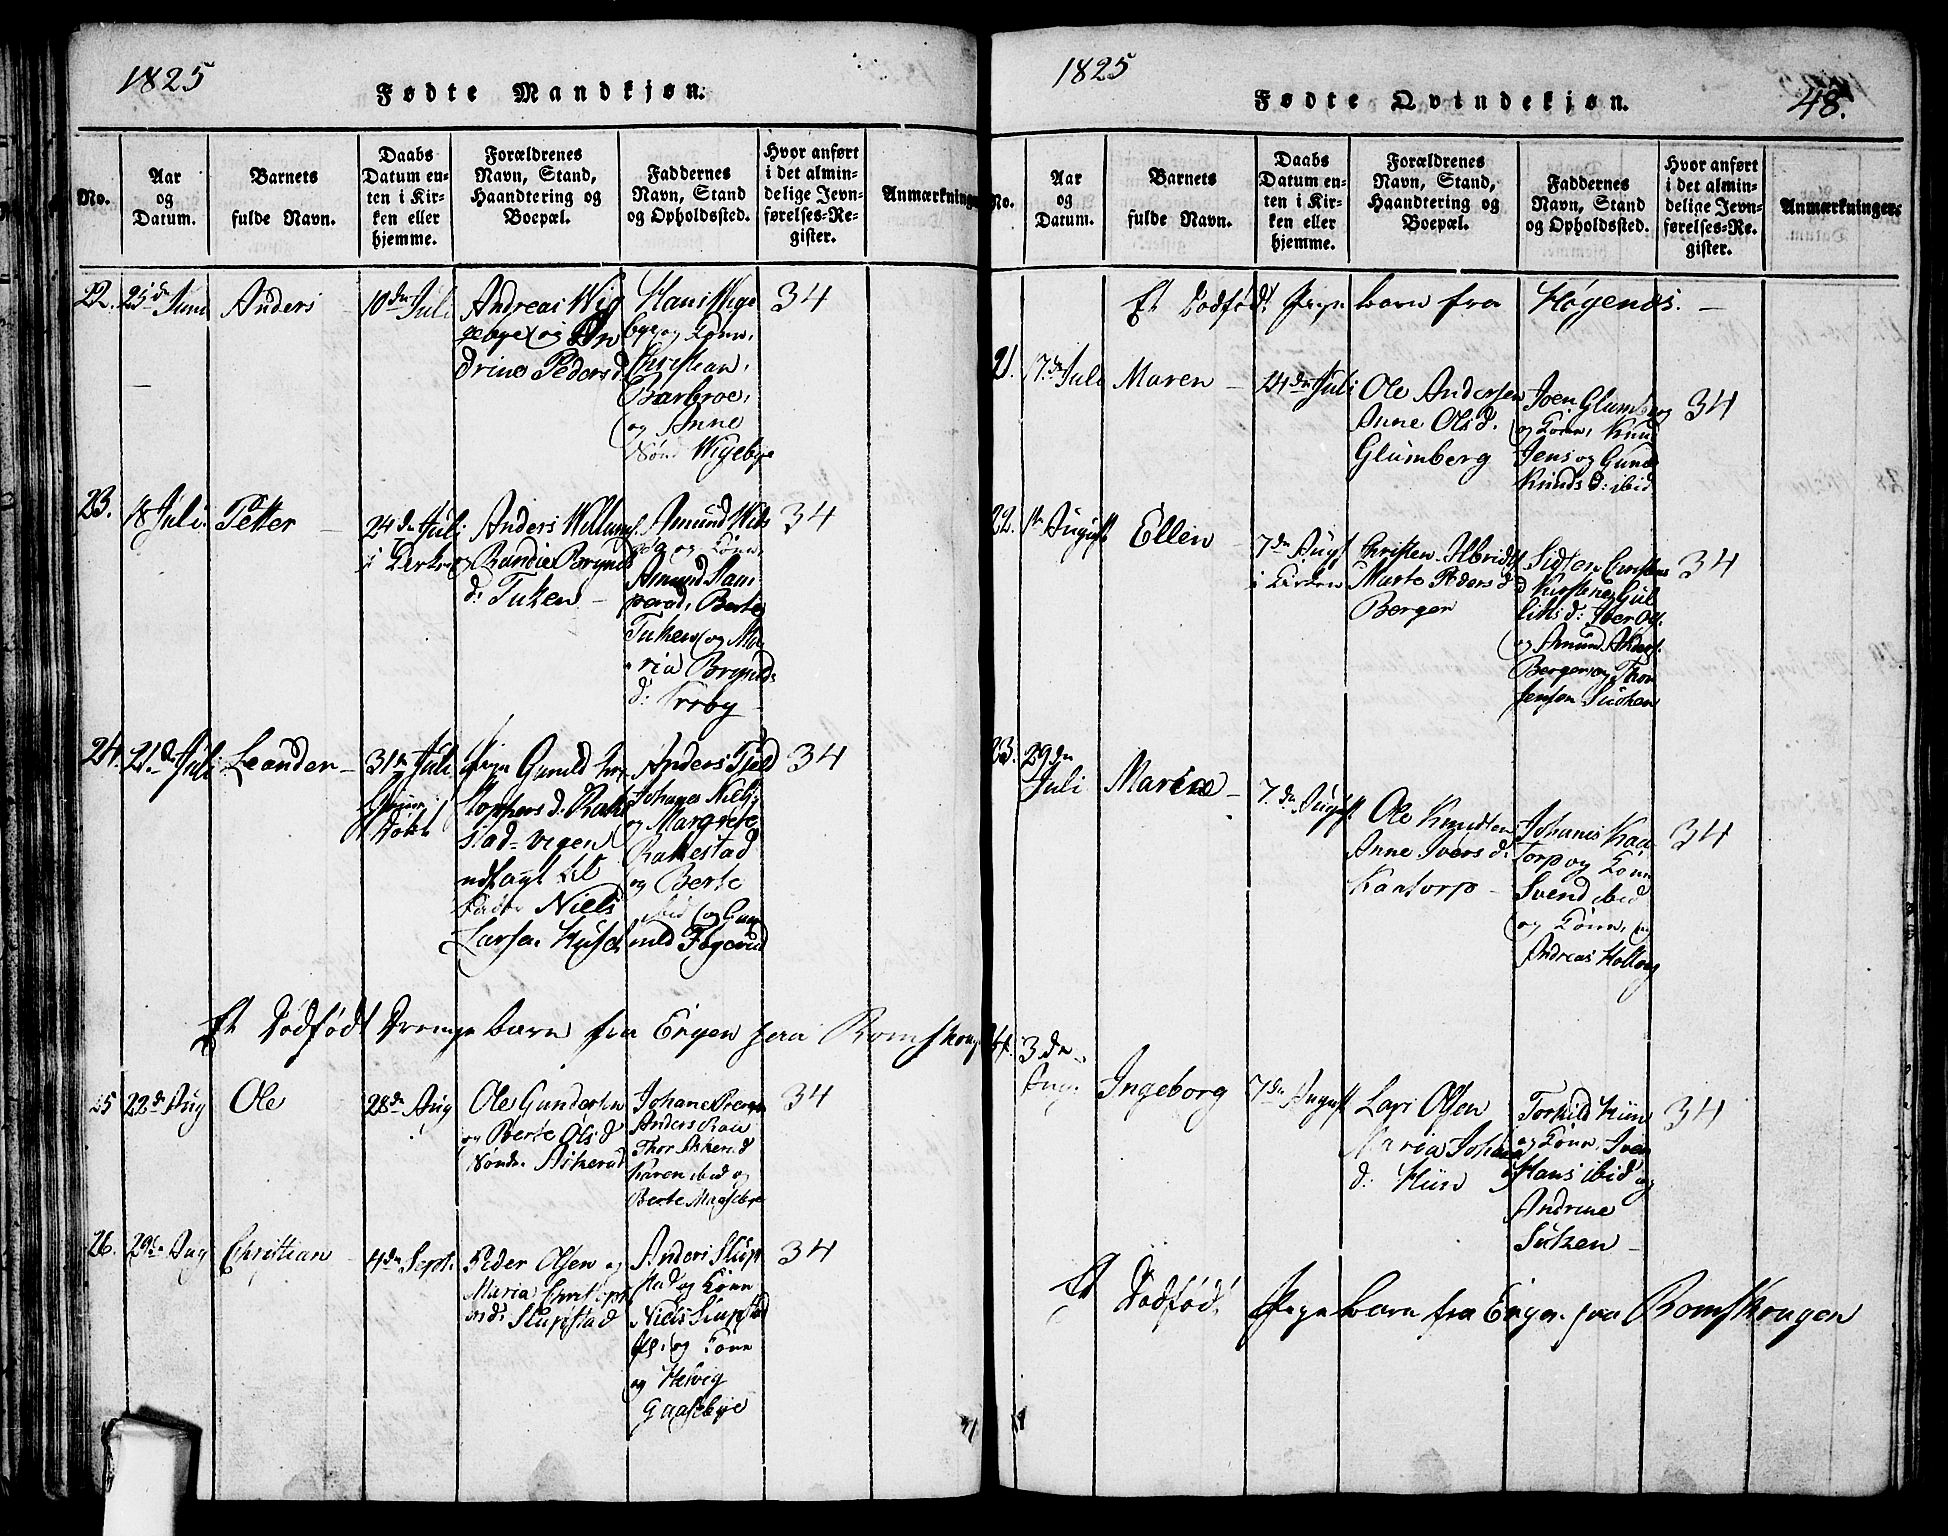 1825
Fødte Mandkjøn.
No.
Aar
og
Datum.
Barnets
fulde Navn.
Daabs
Datum en-
ten i Kir-
ken eller
hjemme.
Forældrenes
Navn, Stand,
Haandtering og
Boepæl.
Faddernes
Navn, Stand
og Opholdssted.
Hvor anført
i det almin-
delige Jevn-
førelses-Re-
gister.
Anmærkninger
22. 25de Juni Anders 10de Juli
Andreas Wig
gebye og An
drine Pedersd
Hans Wige
bye og Kone,
Christian,
Barbroe,
og Anne
Wigebye
34
23. 18 Juli. Petter 24de Juli
i Kirken
Anders Willums
og Randie Brynilds
d: Tuken
Amund
og Kone,
Amund
Berte
Tuken og Ma
ria Brynilds
d: Krogby
34
24. 21de Juli Leander 31te Juli
Pige Gunild
d: Rake
stad-vegen
udlagt til
Fader Niels
Larsen
Anders Fjeld
Johanes Niels
og Margrete
Rakestad
og Berte
ibid og Gun
nild
34
Et Dødfødt Drengebarn fra Ergen paa Romskougen
25 22de Aug Ole 28de Aug
Ole Gundersen
og Berte Olsd
Søndr Askerud
Johane
Anders
Thor Askerud
Karen ibid og
Berte
34
26. 29de Aug Christian 4de Sept.
Peder Olsen og
Maria Christoph
ersd: Slupstad
Anders Slup
stad og Kone
Niels Slupstad
og Kone
og Helvig
Gaasebye
34
1825
Fødte Qvindekjøn.
48.
No.
Aar
og
Datum.
Barnets
fulde Navn.
Daabs
Datum en-
ten i Kir-
ken eller
hjemme.
Forældrenes
Navn, Stand,
Haandtering og
Boepæl.
Faddernes
Navn, Stand
og Opholdssted.
Hvor anført
i det almin-
delige Jevn-
førelses-Re-
gister.
Anmærkninger.
Et Dødfødt Pige barn fra Høgenæs.
21. 7de Juli Maren 24de Juli
Ole Andersen
Anne Olsd.
Glumberg
Joen Glumberg
og Kone, Knud
Jens og Gunil
Knudsd: ibid
34
22. 1ste August Ellen 7de Augst
i Kirken
Christen
Marte Pedersd
Bergen
Kirstene Gul
liksd: Iver Ols.
og Amund Anders.
Bergen og Thor
Jensen
34
23. 29de
Juli
Maria 7de August
Ole Knudsen
Anne Iversd:
Kaatorp
Johanes Kaa
torp og Kone
Svend ibid
og Kone, og
Andreas
34
24. 3de
Aug.
Ingeborg 7de August
Lars Olsen
Maria Johans
d: Hün
Torkild Hün
og Kone Sven
Hans ibid og
Andrine
34
Et Dødfødt Pigebarn fra Ergen paa Romskougen